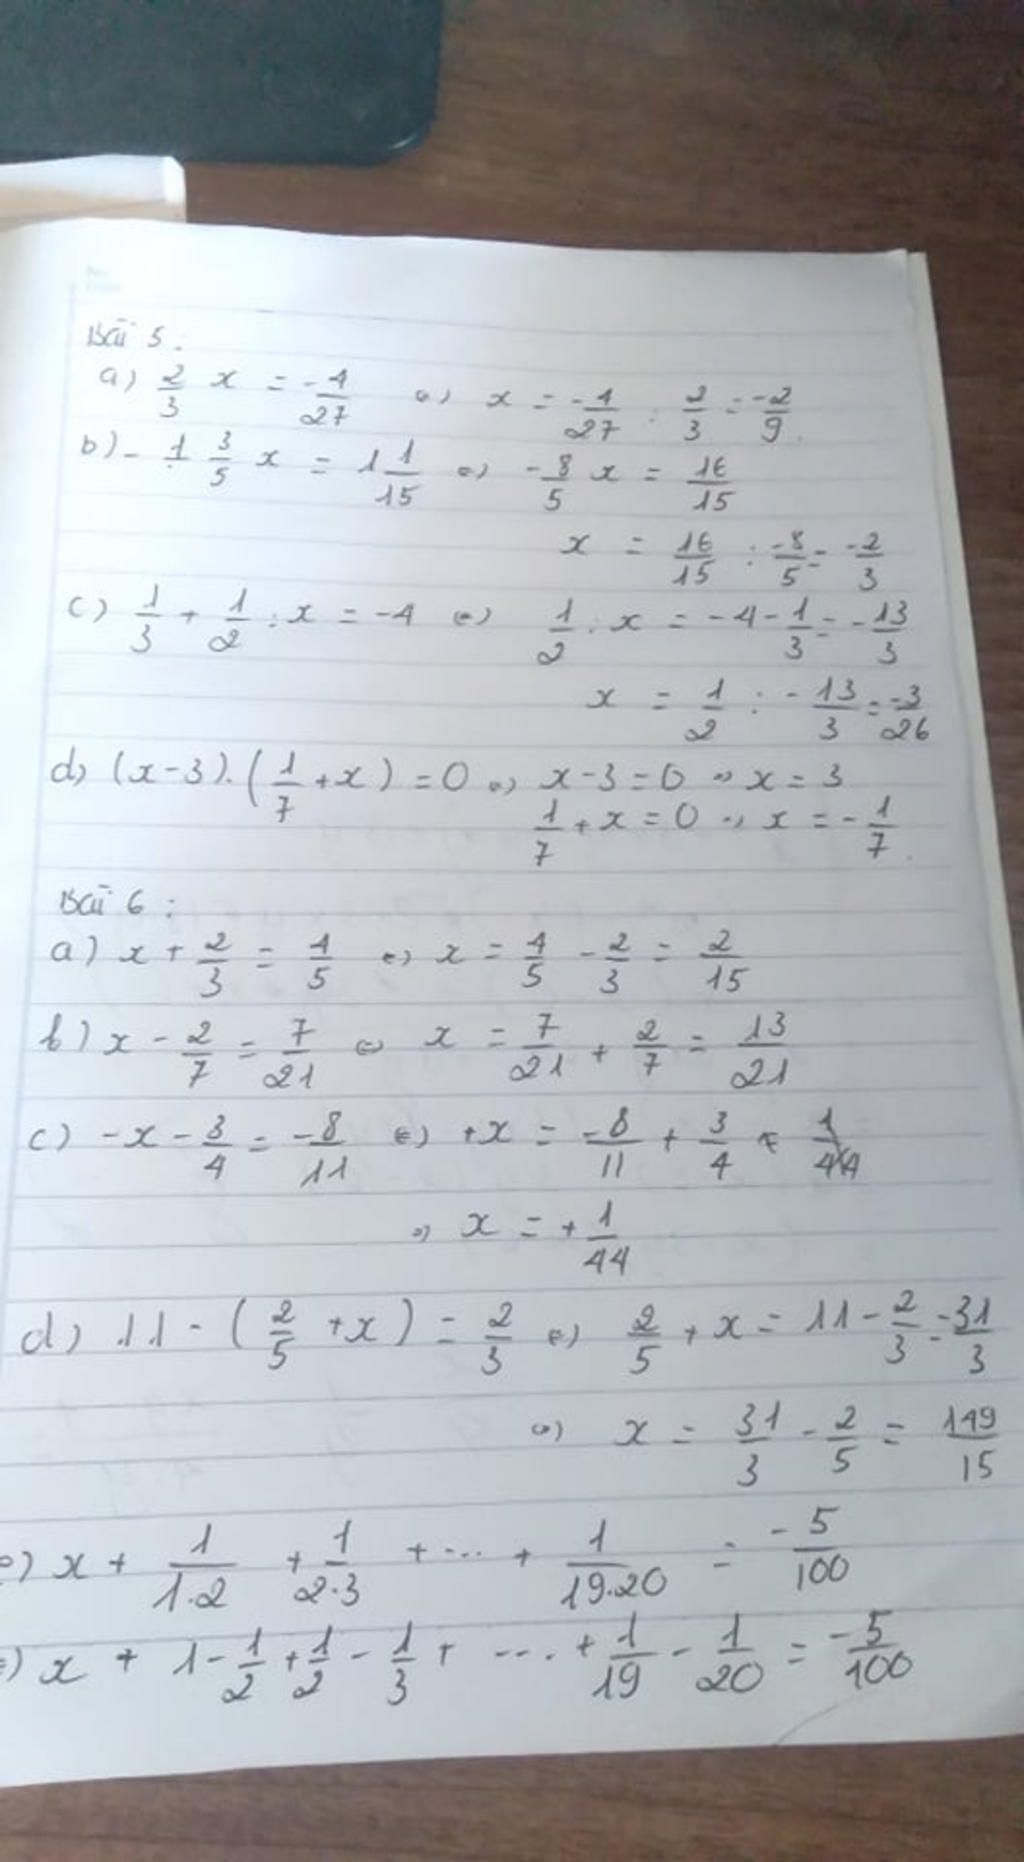 Bài 5:
a) 2/3 x = -4/27 <=> x = -4/27 : 2/3 = -2/9.
b) - 1 3/5 x = 1 1/15 <=> -8/5 x = 16/15
x = 16/15 : -8/5 = -2/3
c) 1/3 + 1/2 : x = -4 <=> 1/2 : x = -4 - 1/3 = -13/3
x = 1/2 : -13/3 = -3/26
d) (x-3).(1/7 + x) = 0 <=> x-3 = 0 => x = 3
1/7 + x = 0 => x = -1/7.
Bài 6:
a) x + 2/3 = 4/5 <=> x = 4/5 - 2/3 = 2/15
b) x - 2/7 = 7/21 <=> x = 7/21 + 2/7 = 13/21
c) -x - 3/4 = -8/11 <=> +x = -8/11 + 3/4 = 1/44
=> x = +1/44
d) 11 - (2/5 + x) = 2/3 <=> 2/5 + x = 11 - 2/3 = 31/3
<=> x = 31/3 - 2/5 = 149/15
e) x + 1/1.2 + 1/2.3 + ... + 1/19.20 = -5/100
x + 1 - 1/2 + 1/2 - 1/3 + .... + 1/19 - 1/20 = -5/100